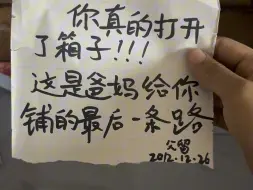 你真的打开
了箱子!!!
这是爸妈给你
铺的最后一条路
父留
2012.12.26